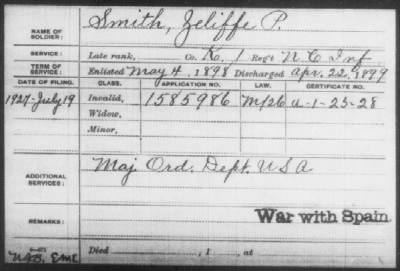 NAME OF SOLDIER: Smith, Zeliffe P.
SERVICE: Late rank, Co. K, 1 Reg't N. C. Inf.
TERM OF SERVICE: Enlisted May 4, 1898 Discharged Apr. 22, 1899
DATE OF FILING. CLASS. APPLICATION NO. LAW. CERTIFICATE NO.
1927-July 19 Invalid, 1585986 a-1-23-28
Widow,
Minor,
ADDITIONAL SERVICES: Maj. Ord. Dept. U S A
REMARKS: War with Spain.
Died , 1 , at